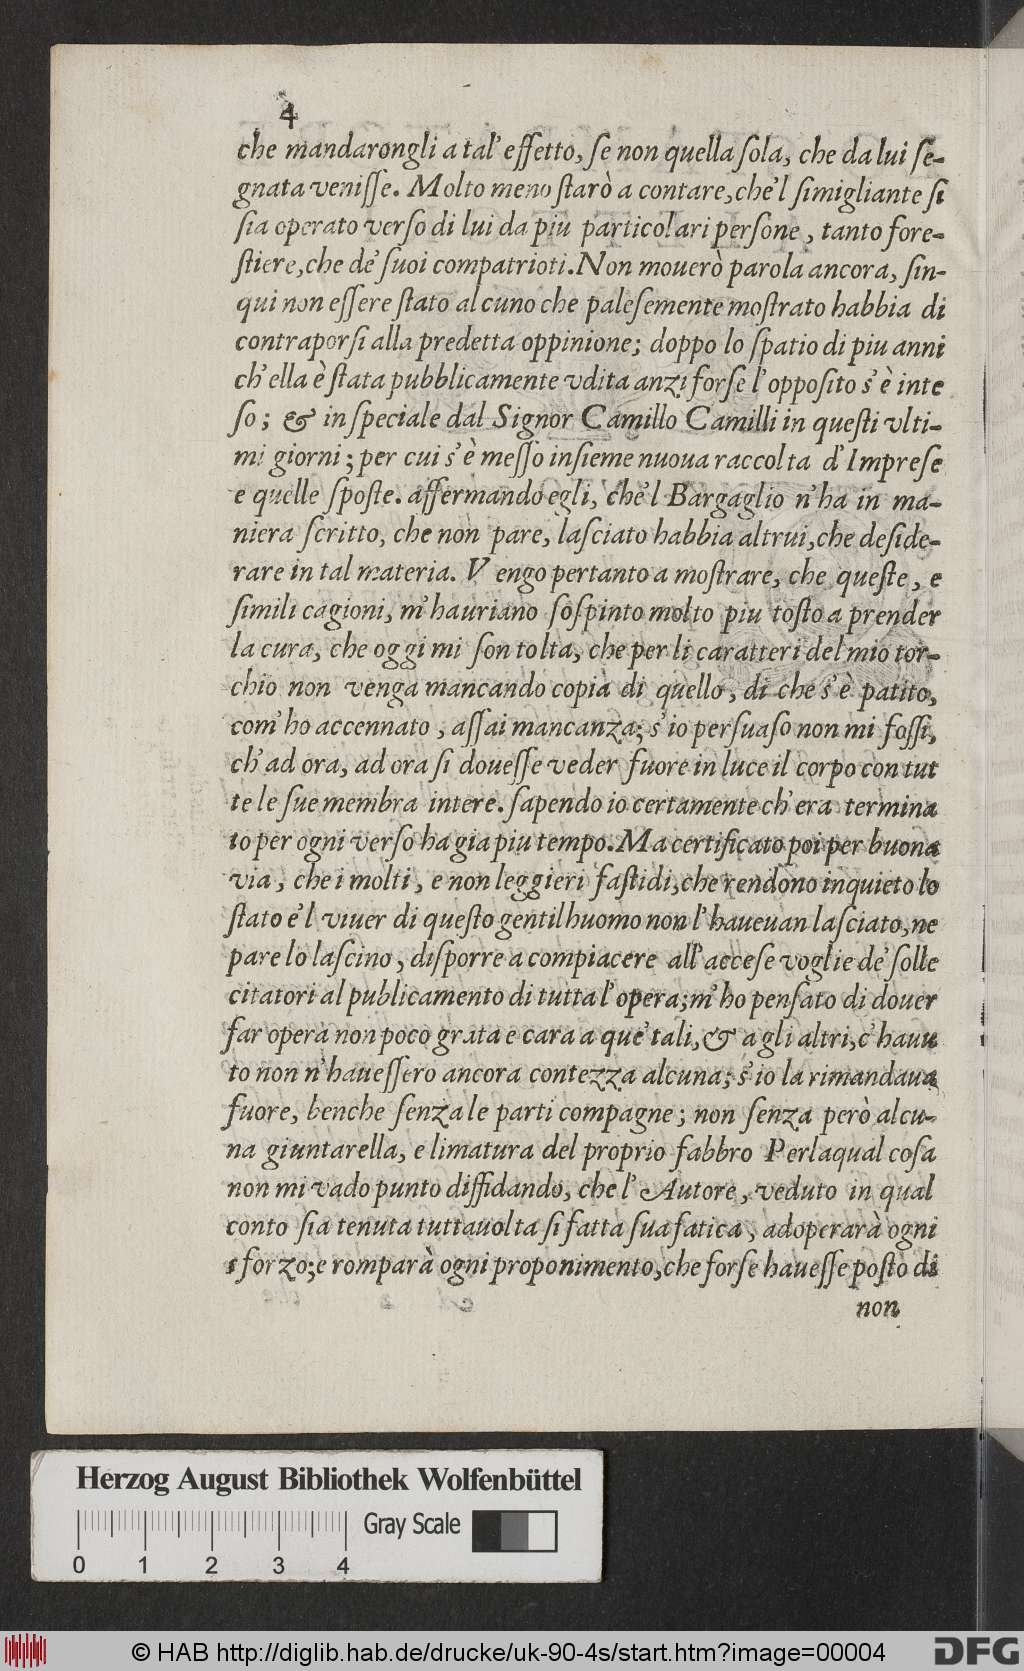 4
che mandarongli a tal' effetto, se non quella sola, che da lui se-
gnata venisse. Molto meno starò a contare, che'l simigliante si
sia operato verso di lui da piu particolari persone, tanto fore-
stiere, che de' suoi compatrioti. Non mouerò parola ancora, sin-
qui non essere stato alcuno che palesemente mostrato habbia di
contraporsi alla predetta oppinione; doppo lo spatio di piu anni
ch' ella è stata pubblicamente vdita anzi forse l' opposito s' è inte
so; & in speciale dal Signor Camillo Camilli in questi vlti-
mi giorni; per cui s' è messo insieme nuoua raccolta d' Imprese
e quelle sposte. affermando egli, che'l Bargaglio n' ha in ma-
niera scritto, che non pare, lasciato habbia altrui, che deside-
rare in tal materia. V engo pertanto a mostrare, che queste, e
simili cagioni, m' hauriano sospinto molto piu tosto a prender
la cura, che oggi mi son tolta, che per li caratteri del mio tor-
chio non venga mancando copia di quello, di che s' è patito,
com' ho accennato, assai mancanza; s' io persuaso non mi fossi,
ch' ad ora, ad ora si douesse veder fuore in luce il corpo con tut
te le sue membra intere. sapendo io certamente ch' era termina
to per ogni verso ha gia piu tempo. Ma certificato poi per buona
via, che i molti, e non leggieri fastidi, che rendono inquieto lo
stato e'l viuer di questo gentilhuomo non l' haueuan lasciato, ne
pare lo lascino, disporre a compiacere all' accese voglie de' solle
citatori al publicamento di tutta l' opera; m' ho pensato di douer
far opera non poco grata e cara a que' tali, & a gli altri, c' hauu
to non n' hauessero ancora contezza alcuna; s' io la rimandaua
fuore, benche senza le parti compagne; non senza però alcu-
na giuntarella, e limatura del proprio fabbro Perlaqual cosa
non mi vado punto diffidando, che l' Autore, veduto in qual
conto sia tenuta tuttauolta si fatta sua fatica, adoperarà ogni
sforzo; e romparà ogni proponimento, che forse hauesse posto di
non
Herzog August Bibliothek Wolfenbüttel
Gray Scale
0 1 2 3 4
© HAB http://diglib.hab.de/drucke/uk-90-4s/start.htm?image=00004
DFG